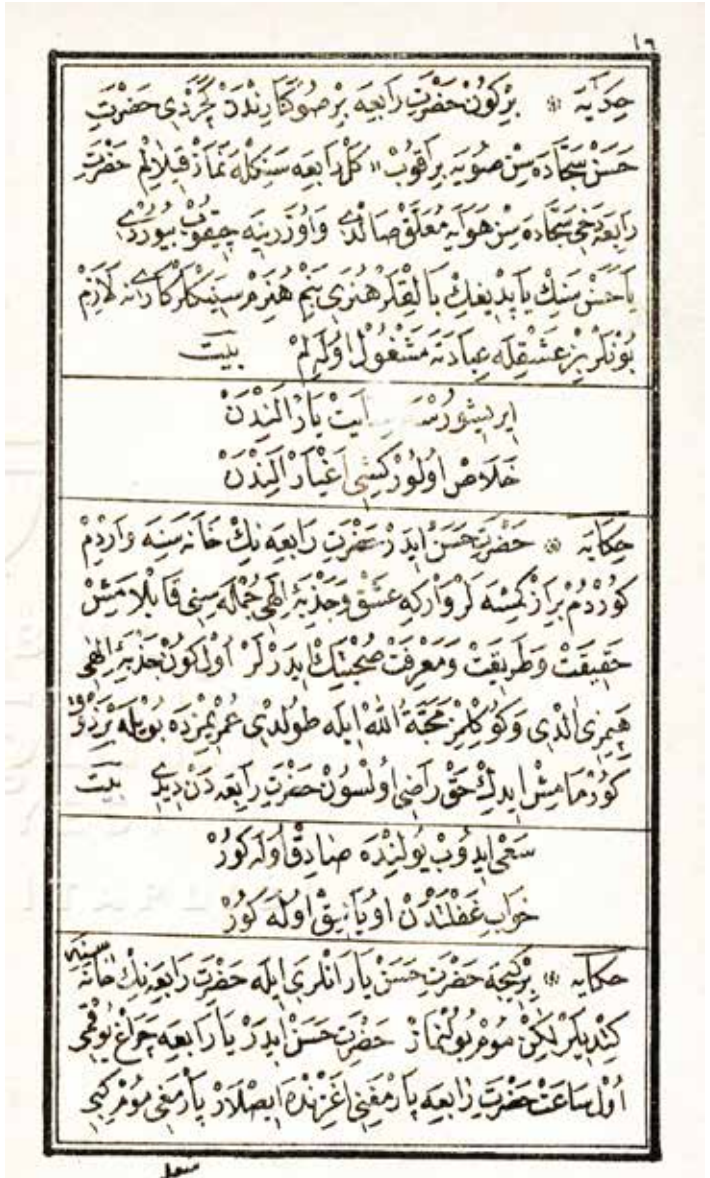 ١٦
حكاية بِرْكُونْ حَضْرَتِ رَابِعَه بِرْ صُو كَنَارِنْدَنْ كَچَرْدِى حَضْرَتِ
حَسَنْ سَجَّادَه سِنْ صُويَه بِرَاقُوبْ كَلْ رَابِعَه سَنِكْلَه نَمَازْ قِيلَالِمْ حَضْرَتِ
رَابِعَه دَخِى سَجَّادَه سِنْ هَوَايَه مُعَلَّقْ صَالْدِى وَاُوزَرِينَه چِيقُوبْ بُيُورْدِى
يَا حَسَنْ سَنِكْ يَاپْدِيغِكْ بَالِقْلَرْ هُنَرِى بَنِمْ هُنَرِمْ سِينَكْلَرْ كَارِى نَه لَازِمْ
بُونْلَرْ بِزْ عَشْقِلَه عِبَادَتَه مَشْغُولْ اُولَه لِمْ بيت
اِيرِيشُورْسَه اَيِتْ يَارْ اَلِنْدَنْ
خَلَاصْ اُولُورْ كِشِى اَغْيَارْ اَلِنْدَنْ
حِكَايَه حَضْرَتِ حَسَنْ اِيدَرْ حَضْرَتِ رَابِعَه نِكْ خَانَه سِنَه وَارْدِمْ
كُورْدُمْ بِرَازْ كِمْسَه لَرْ وَارْكِه عَشْقْ وَجَذْبَۀ اِلٰهِى جُمْلَه سِنِى قَاپْلَامِشْ
حَقِيقَتْ وَطَرِيقَتْ وَمَعْرِفَتْ صُحْبَتِنْ اِيدَرْلَرْ اُولْ كُونْ جَذْبَۀ اِلٰهِى
هَپِمِزِى اَلْدِى وَكُوكْلِمِزْ مَحَبَّةُ اللّٰه اِيلَه طُولْدِى عُمْرِيمِزْدَه بُويْلَه بِرْ ذَوْق
كُورْمَامِشْ اِيدِكْ حَقْ رَاضِى اُولْسُونْ حَضْرَتِ رَابِعَه دَنْ دِيدِى بيت
سَعْى اِيدُوبْ يُولِنْدَه صَادِقْ اُولَه كُورْ
خَوَابِ غَفْلَتْدَنْ اُويَانِيقْ اُولَه كُورْ
حكايه بِرْكِيجَه حَضْرَتِ حَسَنْ يَارَانْلَرِى اِيلَه حَضْرَتِ رَابِعَه نِكْ خَانَه سِنَه
كِنْدِيلَرْ لٰكِنْ مُومْ بُولُنْمَازْ حَضْرَتِ حَسَنْ اِيدَرْ يَا رَابِعَه چَرَاغْ يُوقْمِى
اُولْ سَاعَتْ حَضْرَتِ رَابِعَه پَارْمَغِنِى اَغْزِنْدَه اِيصْلَارْ پَارْمَغِى مُومْ كِبِى